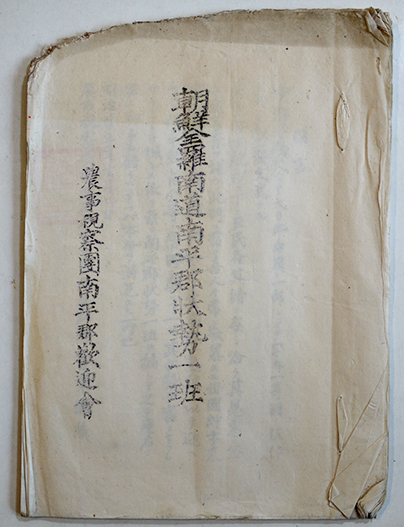 朝鮮全羅南道南平郡状勢一班
農事視察團南平郡歡迎會